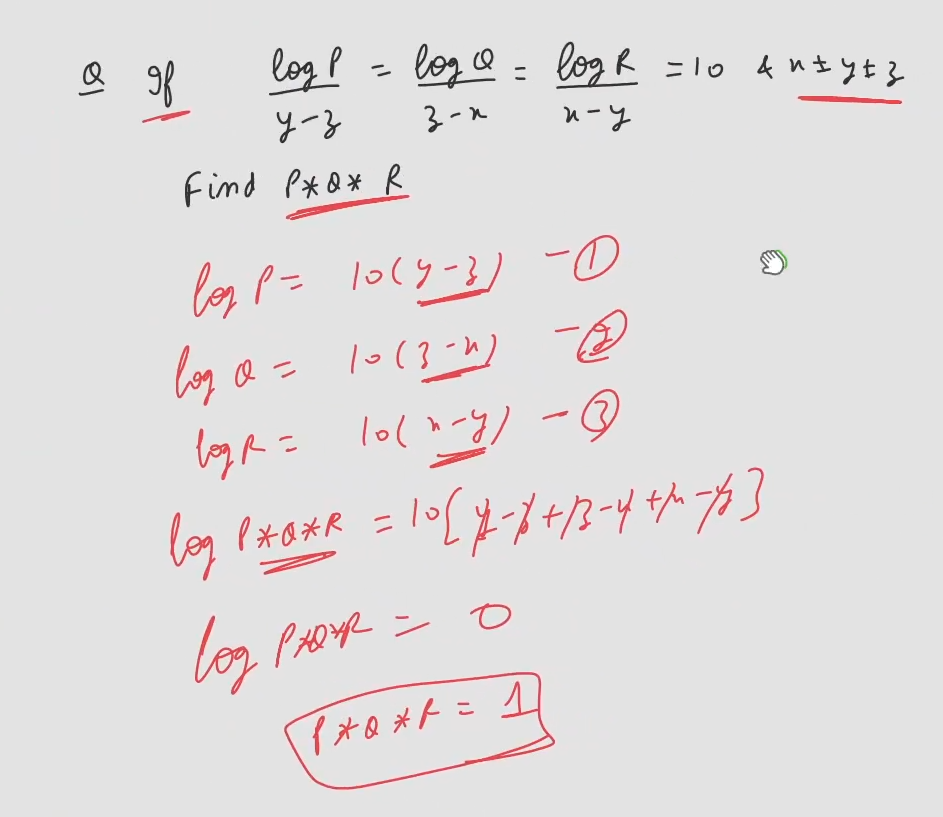 Q If log P / y-z = log Q / z-x = log R / x-y = 10 & x ± y ± z
Find P*Q* R
log P = 10(y-z) - ①
log Q = 10(z-x) - ②
log R = 10(x-y) - ③
log P*Q*R = 10[y-z+z-x+x-y]
log P*Q*R = 0
P*Q*R = 1